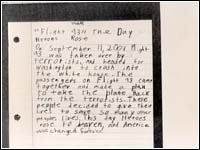 "Flight 93" The Day
Heroes Rose
On September 11, 2001 flight
93 was taken over by
terrorists, and headed for
Washington to crash into
the White house. The
passengers on Flight 93 came
together and made a plan
to take the plane back
from the terrorists. These
people decided to give their
lives to save so many other
people lives. This day Heroes
rose to heaven, and America
was changed forever.